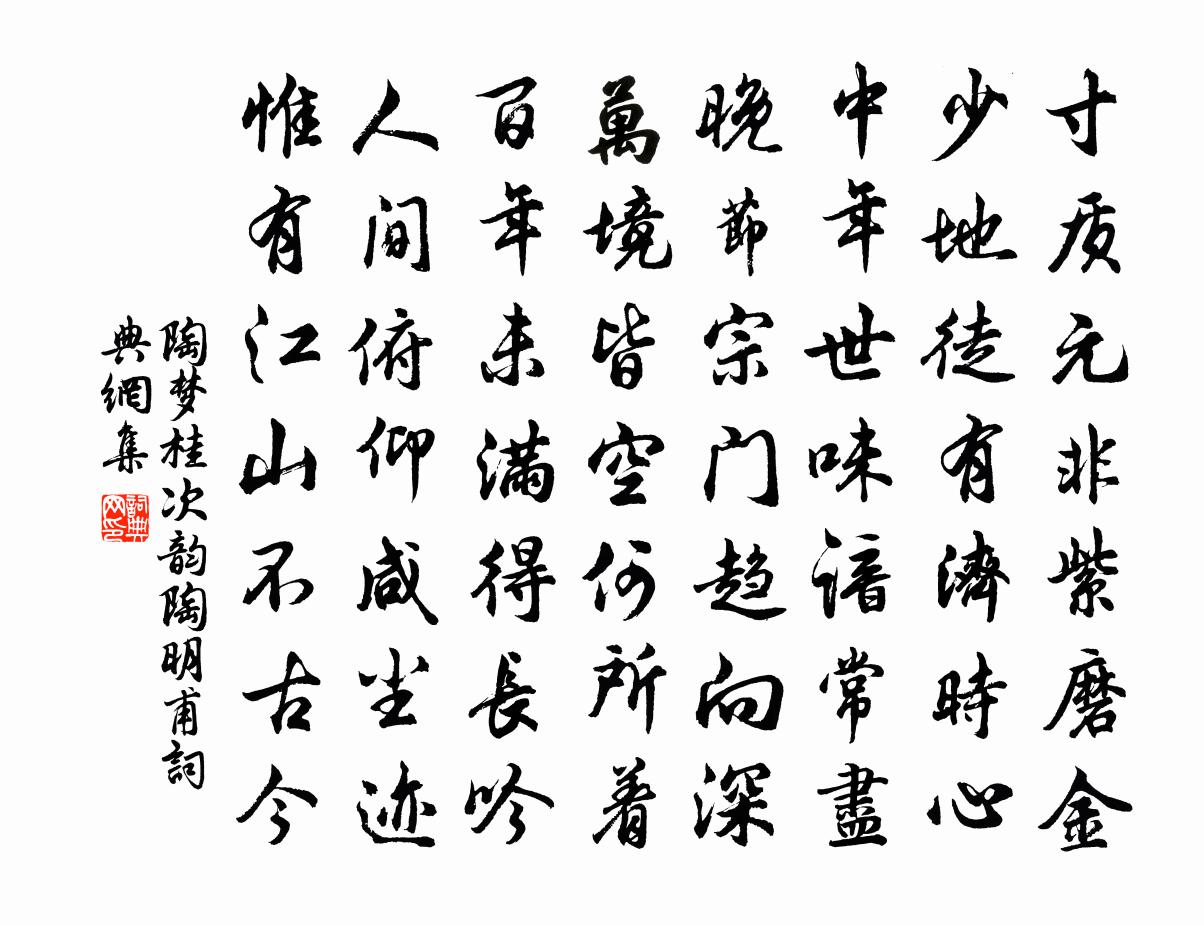 寸质元非紫磨金
少地徒有濟時心
中年世味谙常盡
晚節宗门趋向深
萬境皆空何所着
百年未满得長吟
人间俯仰咸尘迹
惟有江山不古今
陶梦桂次韵陶明甫詞
典網集
詞典网印